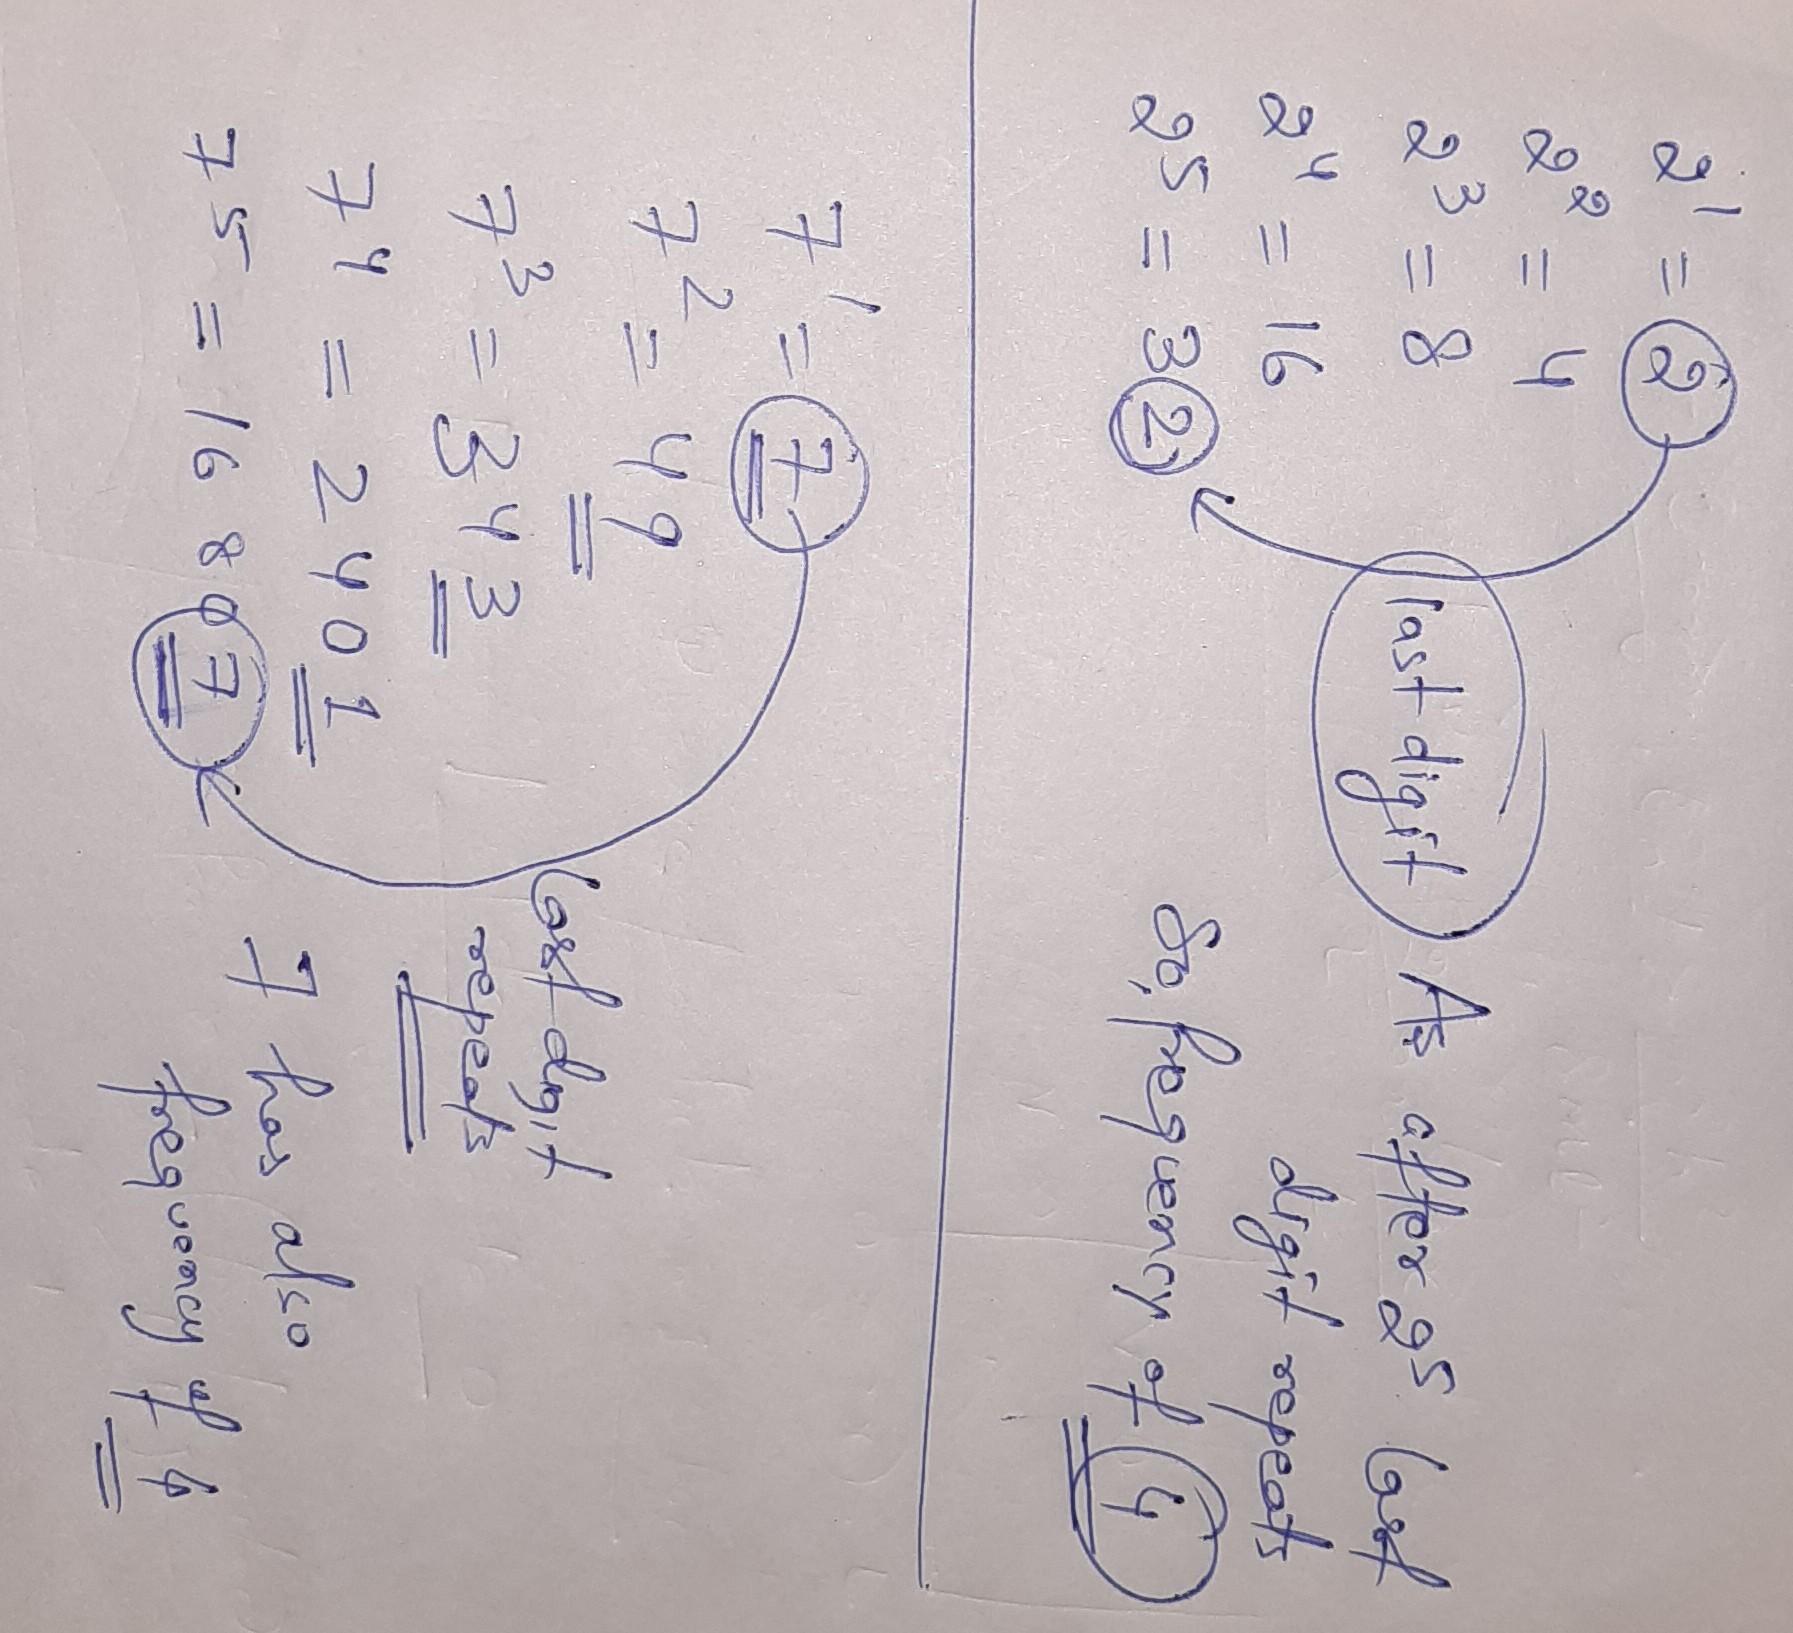 2¹ = 2
2² = 4
2³ = 8
2⁴ = 16
2⁵ = 32
last digit
As after 2⁵ last
digit repeats
So, frequency of 4
7¹ = 7
7² = 49
7³ = 343
7⁴ = 2401
7⁵ = 16807
last digit
repeats
7 has also
frequency of 4